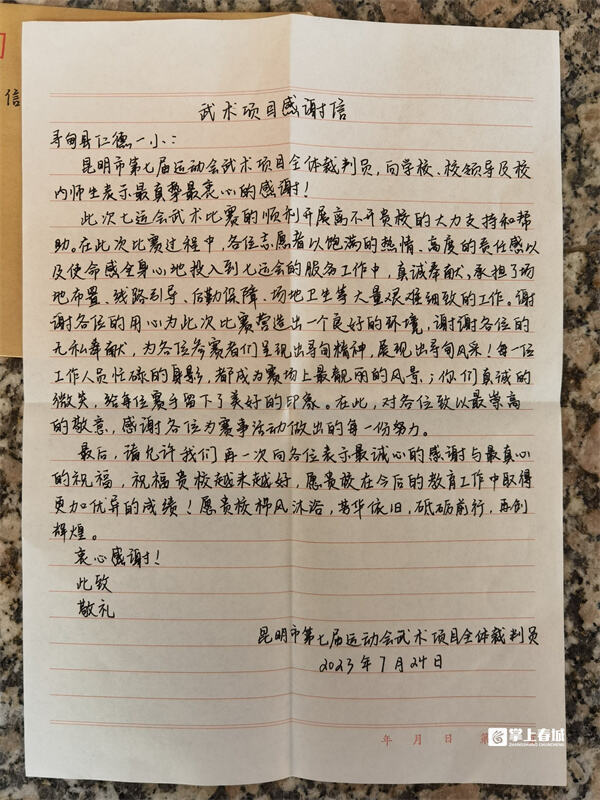 信
武术项目感谢信
寻甸县仁德一小：
昆明市第七届运动会武术项目全体裁判员，向学校、校领导及校
内师生表示最真挚最衷心的感谢！
此次七运会武术比赛的顺利开展离不开贵校的大力支持和帮
助。在此次比赛过程中，各位志愿者以饱满的热情、高度的责任感以
及使命感全身心地投入到七运会的服务工作中，真诚奉献，承担了场
地布置、线路引导、后勤保障、场地卫生等大量艰难细致的工作。谢
谢各位的用心为此次比赛营造出一个良好的环境，谢谢各位的
无私奉献，为各位参赛者们呈现出寻甸精神，展现出寻甸风采！每一位
工作人员忙碌的身影，都成为赛场上最靓丽的风景；你们真诚的
微笑，给每位赛手留下了美好的印象。在此，对各位致以最崇高
的敬意，感谢各位为赛事活动做出的每一份努力。
最后，请允许我们再一次向各位表示最诚心的感谢与最真心
的祝福，祝福贵校越来越好，愿贵校在今后的教育工作中取得
更加优异的成绩！愿贵校栉风沐浴，芳华依旧，砥砺前行，再创
辉煌。
衷心感谢！
此致
敬礼
昆明市第七届运动会武术项目全体裁判员
2023年7月24日
年 月 日 第
掌上春城
ZHANGSHANG CHUNCHENG